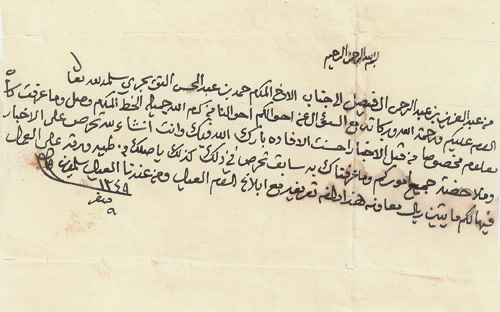 بسم الله الرحمن الرحيم
من عبد العزيز بن عبد الرحمن الفيصل الى جناب الاخ المكرم حمد بن عبد المحسن التويجري سلمه الله تعالى
السلام عليكم ورحمة الله وبركاته مع السؤال عن احوالكم احوالنا من كرم الله جميله الخط المكرم وصل وما عرفت كان
معلوم مخصوصا من قبل الاخبار احسنت الافاده بارك الله فيك وانت انشاء الله تحرص على الاخبار
وملاحضة جميع اموركم وما عرفناك به سابق تحرص في ذلك كذلك ياصلك طيه ورقة على العمال
فيها لكم مايتين ريال معاونه هذا مالزم تعريفه مع ابلاغ السلام العيال ومن عندنا العيال يسلمون والسلام
٩ صفر ١٣٤٩